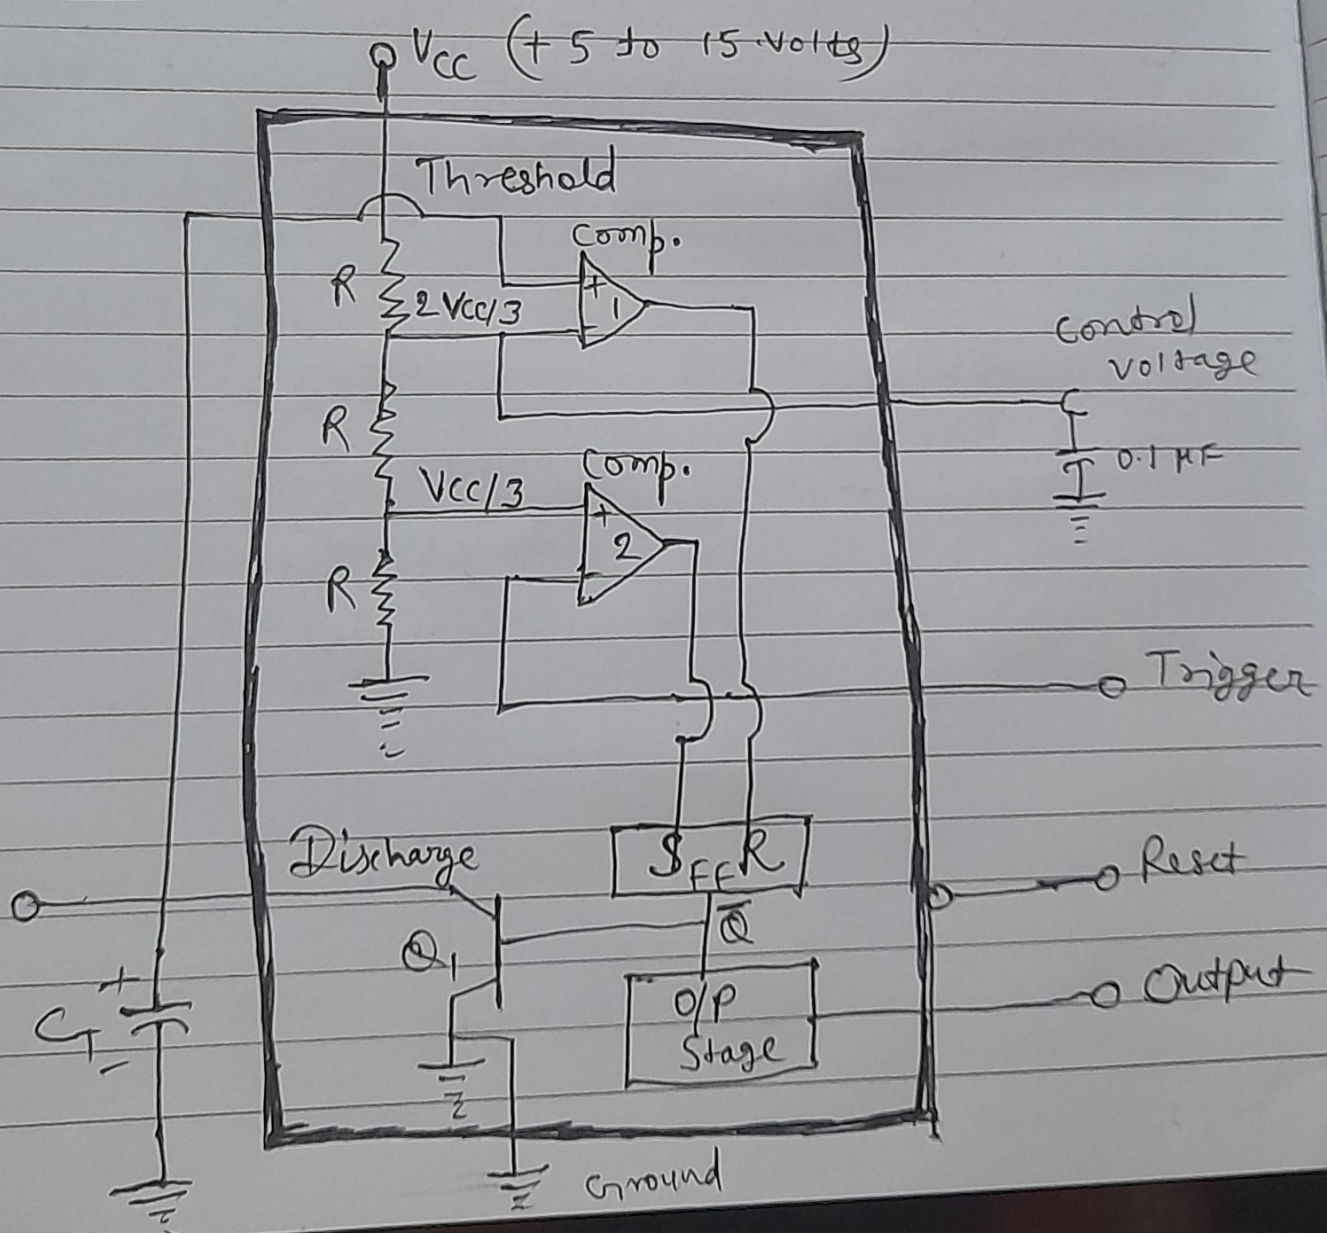 Vcc (+ 5 to 15 volts)
Threshold
Comp.
R
2 Vcc/3
+
1
-
Control
voltage
R
0.1 μF
Comp.
Vcc/3
+
2
-
R
Trigger
Discharge
S FF R
Reset
Q̅
Q1
+
O/P
Stage
Output
CT
-
Ground